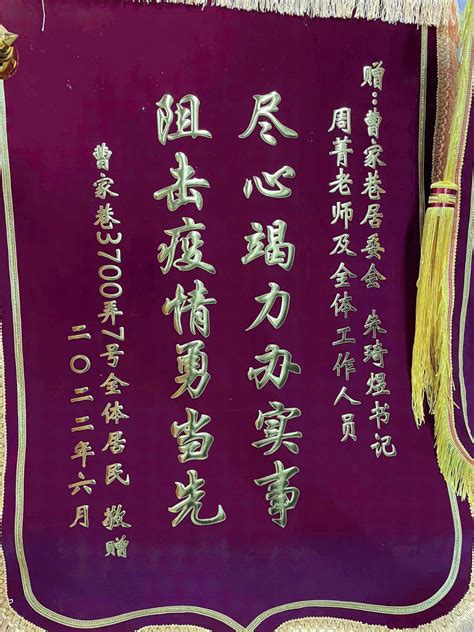 赠：曹家巷居委会 朱琦煜书记
周菁老师及全体工作人员
尽心竭力办实事
阻击疫情勇当先
曹家巷3700弄7号全体居民 敬赠
二〇二二年六月